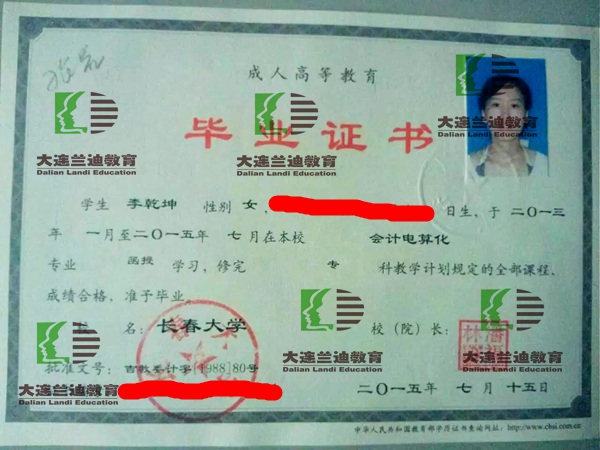 成人高等教育
毕业证书
大连兰迪教育
Dalian Landi Education
大连兰迪教育
Dalian Landi Education
大连兰迪教育
Dalian Landi Education
学生 李乾坤 性别 女, 日生,于二〇一三
年 一月至二〇一五年 七月在本校 会计电算化
专业 函授 学习,修完 专 科教学计划规定的全部课程,
成绩合格,准予毕业。
名:长春大学 校(院)长:
批准文号:吉教委计字[1988]80号
大连兰迪教育
Dalian Landi Education
大连兰迪教育
Dalian Landi Education
大连兰迪教育
Dalian Landi Education
二〇一五年 七月 十五日
中华人民共和国教育部学历证书查询网址:http://www.chsi.com.cn